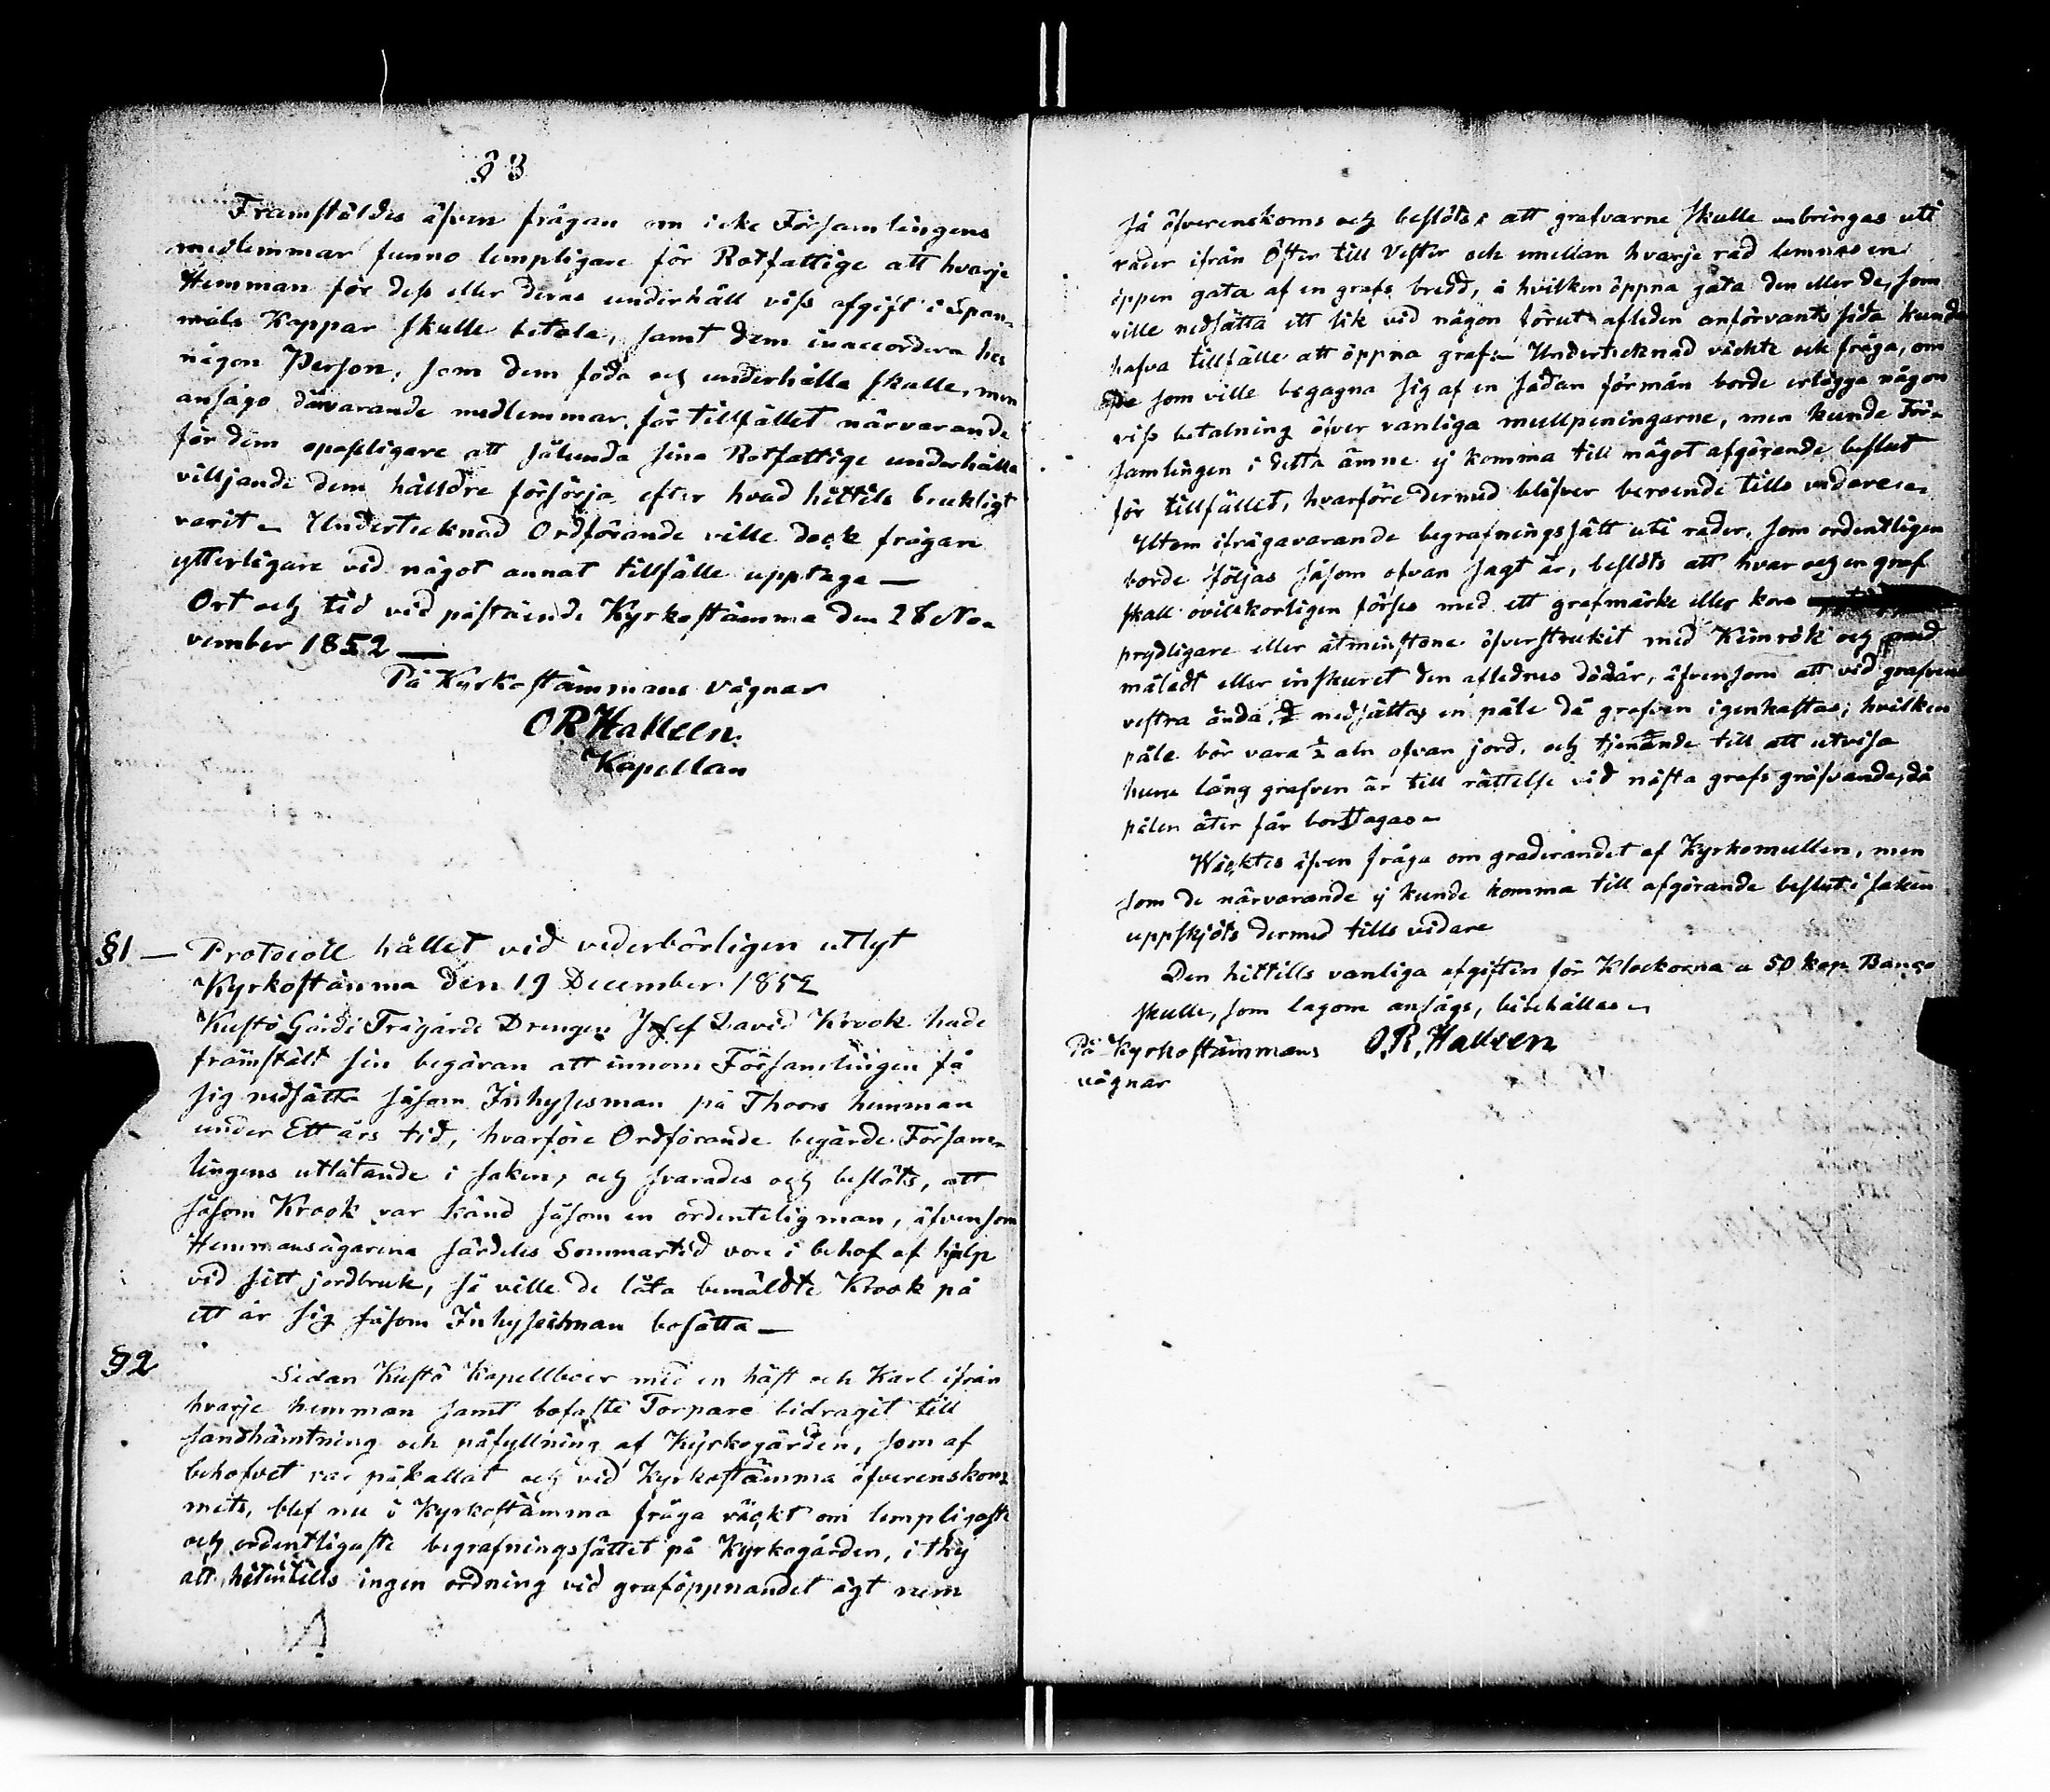 § 3
Framstäldes äfven frågan om icke Församlingens
medlemmar funno lempligare för Rotfattige att hvarje
Hemman för dess eller deras underhåll viss afgift i Span-
måls Kappar skulle betala, samt dem inaccordera hos
någon Person, som dem föda och underhålla skulle, men
ansågo dåvarande medlemmar, för tillfället närvarande
för dem opassligare att sålunda sina Rotfattige underhålla
villjande dem hälldre försörja efter hvad hittils brukligt
varit. Undertecknad Ordförande ville dock frågan
ytterligare vid något annat tillfälle upptaga —
Ort och tid vid påstående Kyrkostämma den 26 No-
vember 1852 —
På Kyrkostämmans vägnar
O R Halleen
Kapellan
§ 1 — Protocoll hållet vid vederbörligen utlyt
Kyrkostämma den 19 December 1852
Kustö Gårds Trägårds Drengen Josef David Krook hade
framstält sin begäran att innom Församlingen få
sig nedsätta såsom Inhysesman på Thoors hemman
under Ett års tid, hvarföre Ordförande begärde Försam-
lingens utlåtande i saken, och svarades och beslöts, att
såsom Krook var känd såsom en ordentelig man, äfvensom
Hemmansägarena särdeles Sommartid vore i behof af hjelp
vid sitt jordbruk, så ville de låta bemäldte Krook på
ett år sig såsom Inhysesman bosätta —
§ 2
Sedan Kustö Kapellboer med en häst och Karl ifrån
hvarje hemman samt besuttne Torpare bidragit till
sandhämtning och påfyllning af Kyrkogården, som af
behofvet var påkallat och vid Kyrkostämma öfverenskom-
mits, blef nu i Kyrkostämma fråga väckt om lempligaste
och ordentligaste begrafningssättet på Kyrkogården, i thy
att hitintills ingen ordning vid graföppnandet ägt rum
Så öfverenskoms och beslöts: att grafvarne skulle anbringas uti
rader ifrån Öster till Vester och emellan hvarje rad lemnas en
öppen gata af en grafs bredd, å hvilken öppna gata den eller de, som
ville nedsätta ett lik vid någon förut afleden anförvants sida kunde
hafva tillfälle att öppna graf. Undertecknad väckte ock fråga, om
de som ville begagna sig af en sådan förmån borde erlägga någon
viss betalning öfver vanliga mullpeningarne, men kunde För-
samlingen i detta ämne ej komma till något afgörande beslut
för tillfället, hvarföre dermed blifver beroende tills vidare.
Utom ifrågavarande begrafningssätt uti rader, som ordentligen
borde följas såsom ofvan sagt är, beslöts att hvar och en graf
skall ovilkorligen förses med ett grafmärke eller kors
prydligare eller åtminstone öfverstrukit med Kimrök och med
måladt eller inskuret den aflednes dödsår, äfvensom att vid grafvens
vestra ända nedsättas en påle då grafven igenkastas; hvilken
påle bör vara ½ aln ofvan jord, och tjenande till att utvisa
huru lång grafven är till rättelse vid nästa grafs gräfvande, då
pålen åter får borttagas
Wäcktes äfven fråga om graderandet af Kyrkomullen, men
som de närvarande ej kunde komma till afgörande beslut i saken
uppskjöts dermed tills vidare
Den hittills vanliga afgiften för Klockorna a 50 kop Banco
skulle, som lagom ansågs, bibehållas
På Kyrkostämmans O. R. Halleen
vägnar